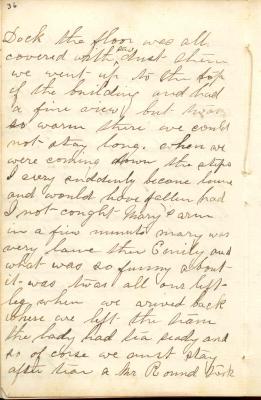 36
Dock the floor was all
covered with saw dust then
we went up to the top
of the building and had
a fine view but
so warm there we could
not stay long. when we
were coming down the steps
I very suddenly became lame
and would have fallen had
I not cought Mary's arm
in a few minuts mary was
very lame then Emily and
what was so funny about
it was twas all our left
leg when we arived back
where we left the team
the lady had tea ready and
so of corse we must stay
after tea a Mr Round took